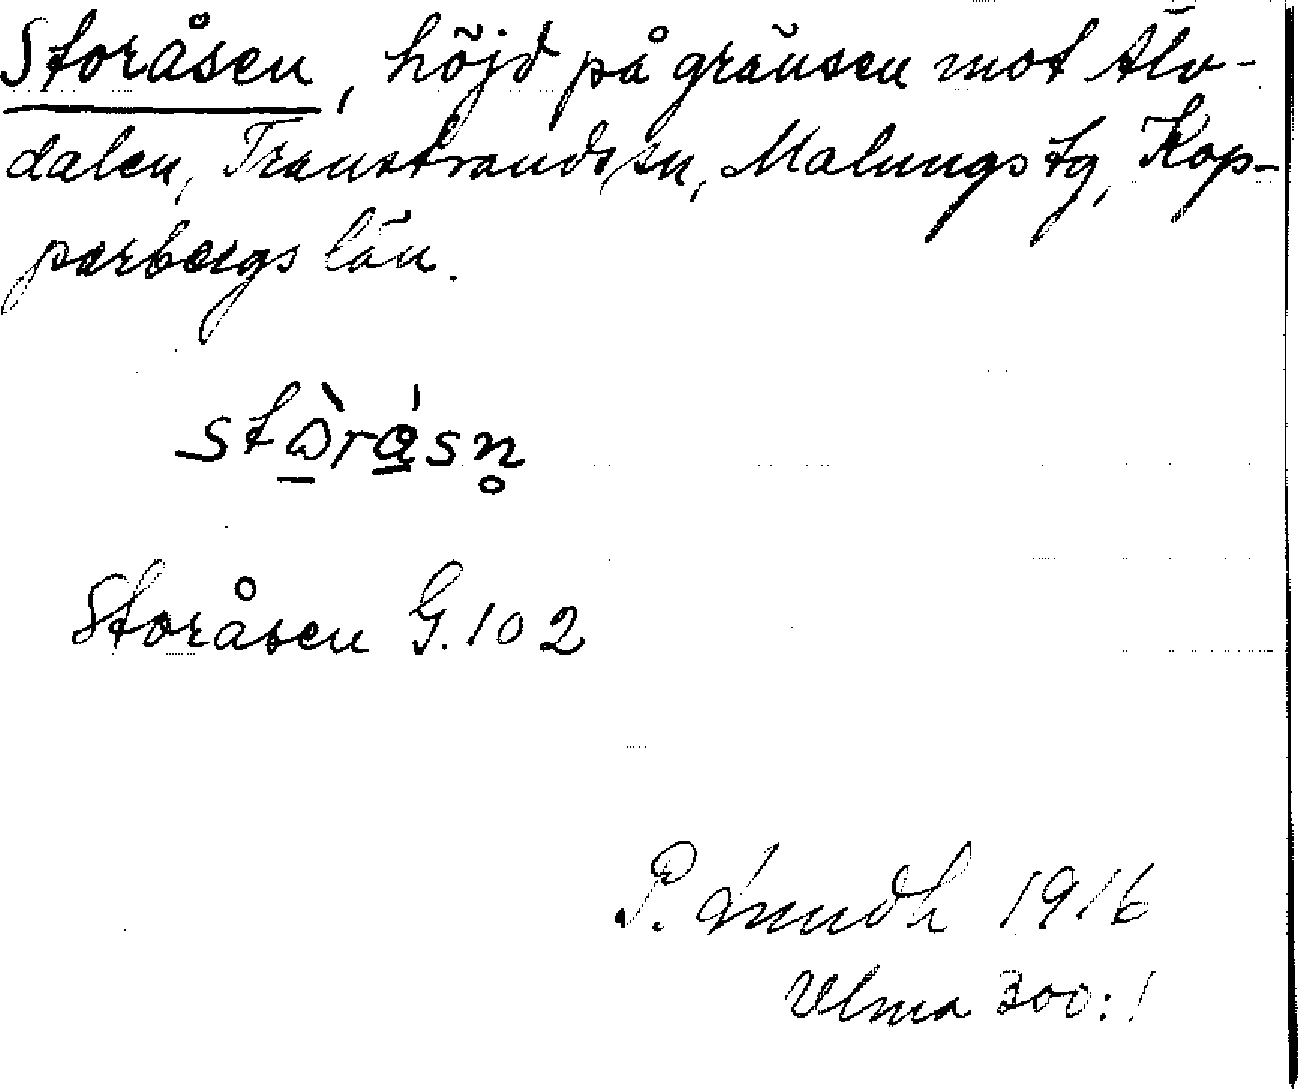 Storåsen, höjd på gränsen mot Älv-
dalen, Transtrands sn, Malungs tg, Kop-
parbergs län.
Storåsen G. 102
P. Lundh 1916
Ulma 300:1